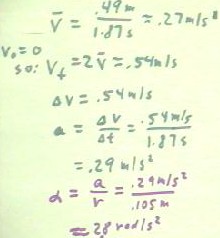 V̄ = .49m / 1.87s = .27m/s²
V₀=0
so: V_f = 2V̄ = .54m/s
ΔV = .54m/s
a = ΔV/Δt = .54m/s / 1.87s
= .29 m/s²
α = a/r = .29m/s² / .105m
= 28 rad/s²